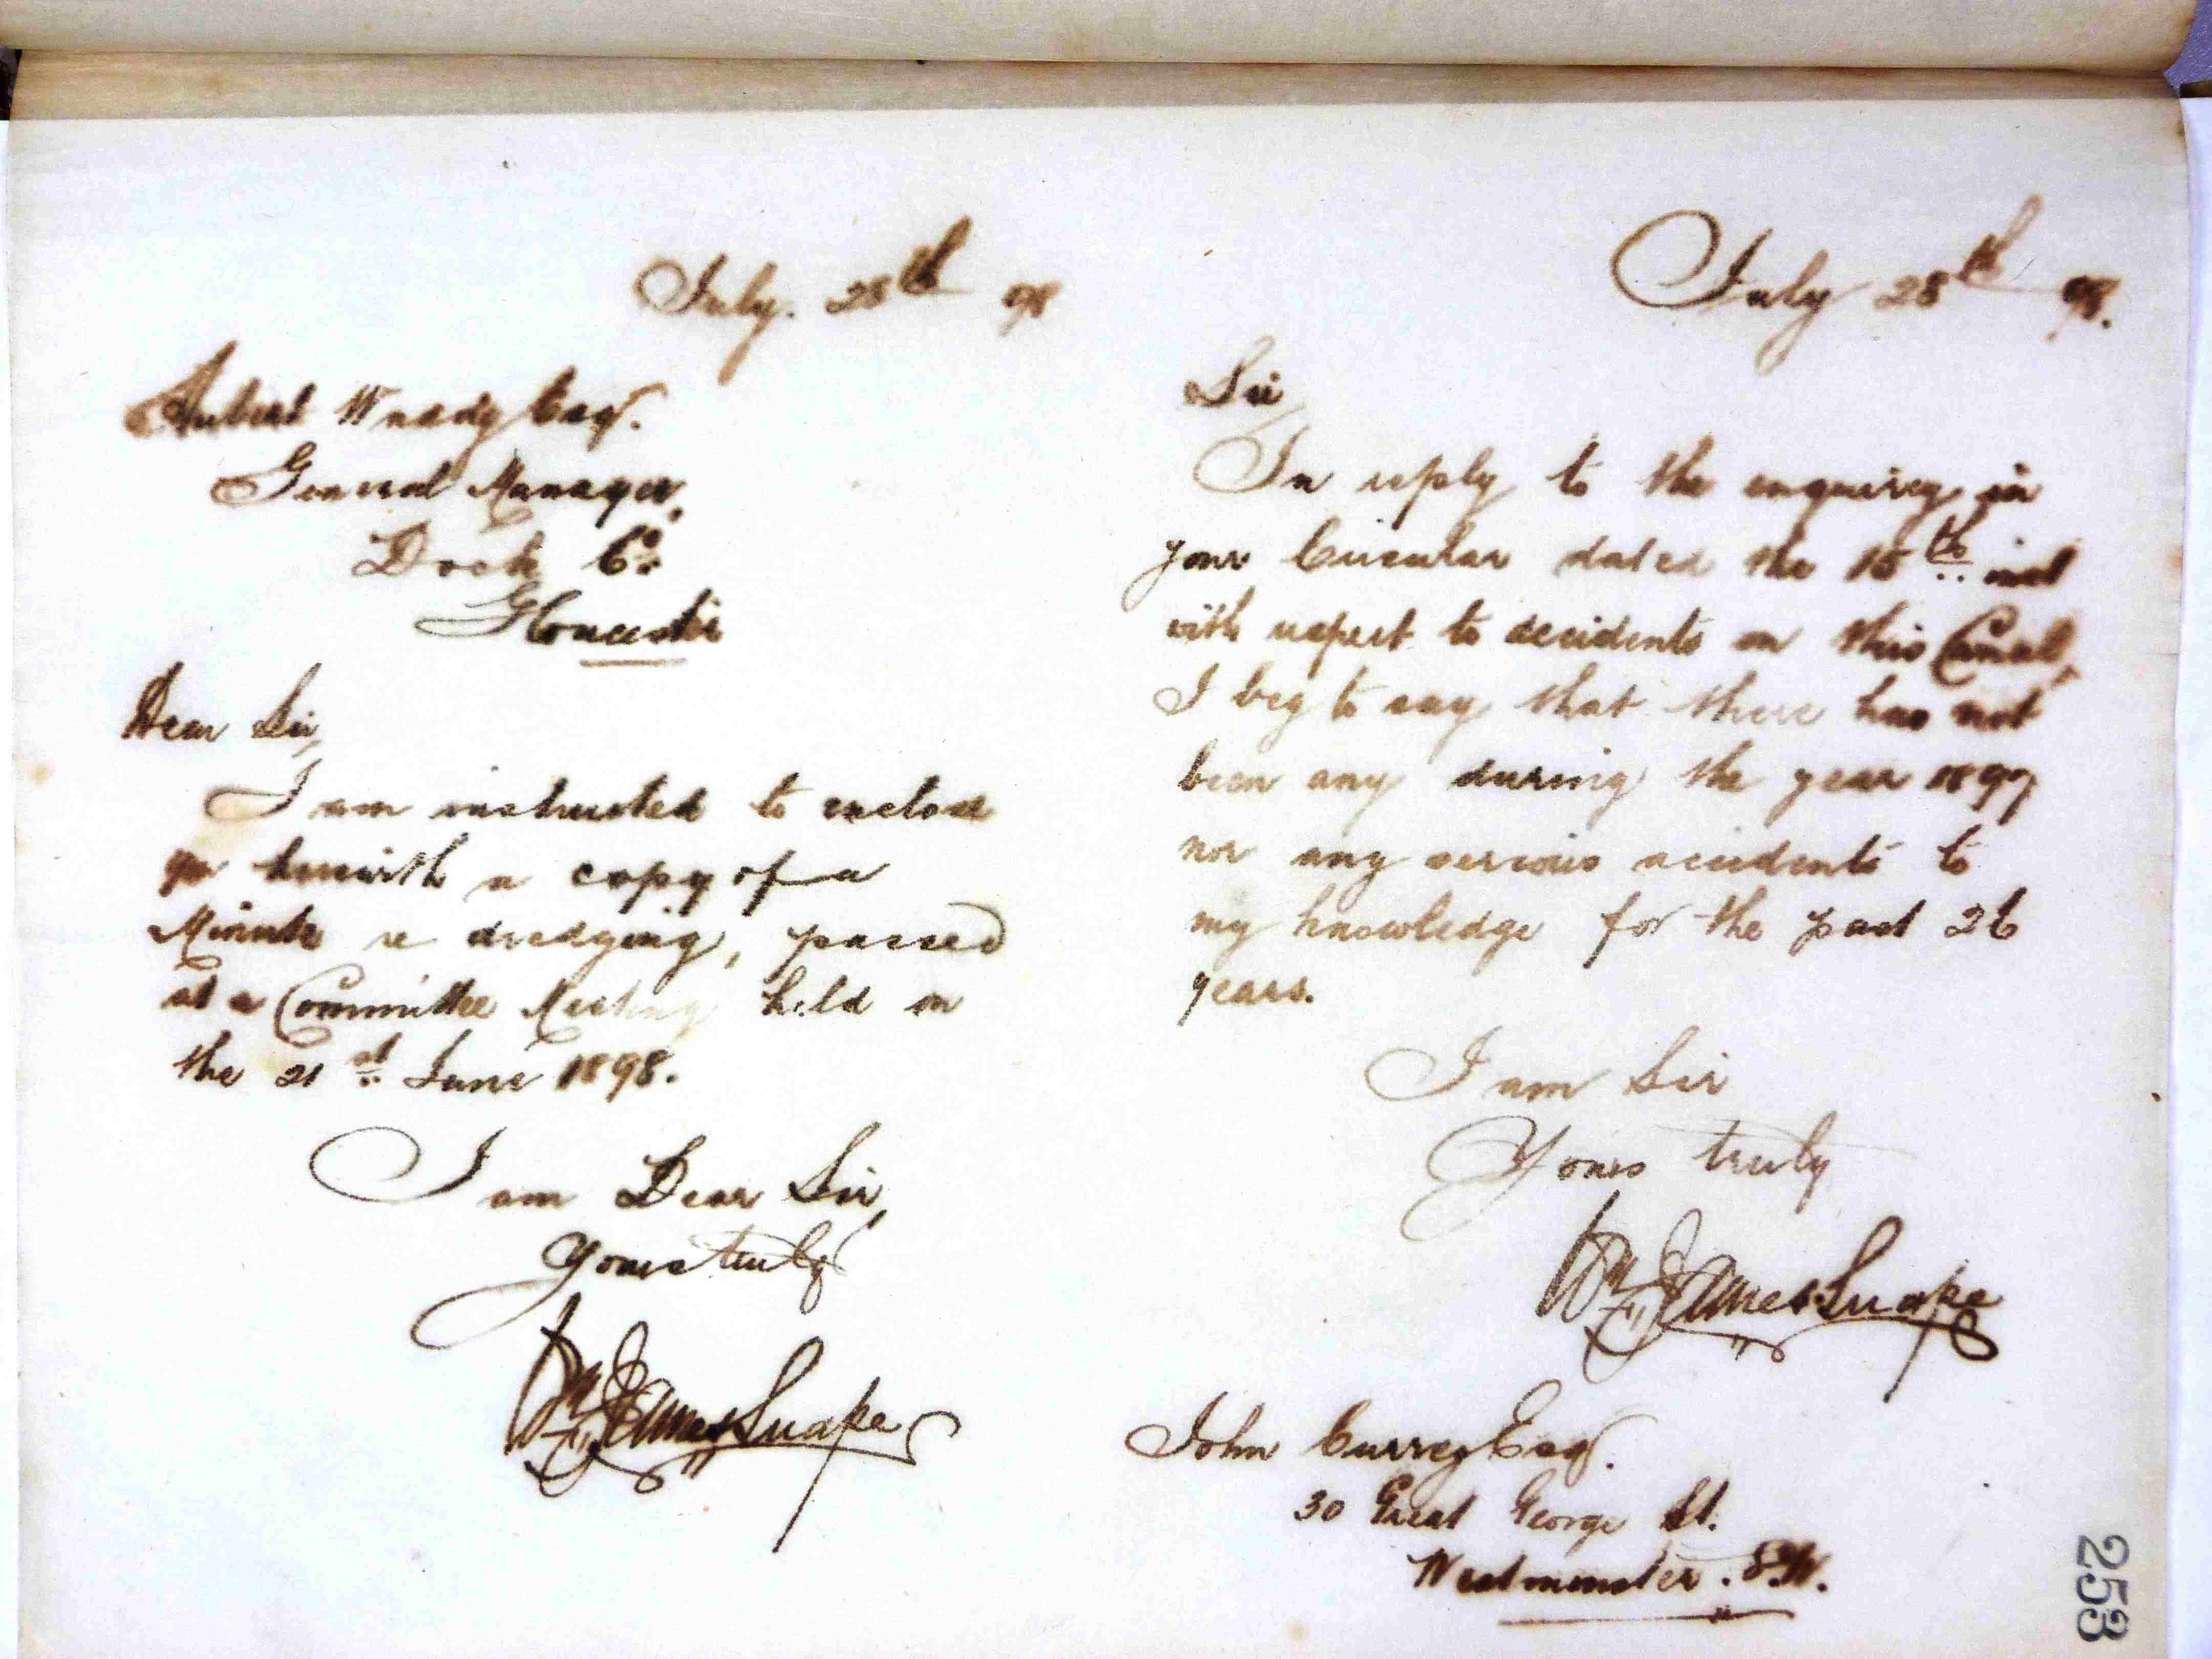 July. 28th 98
Hubert Waddy Esq.
General Manager,
Dock Co.
Gloucester
Dear Sir,
I am instructed to enclose
you herewith a copy of a
Minute re dredging, passed
at a Committee Meeting held on
the 21st June 1898.
I am Dear Sir,
Yours truly
Wm James Snape
July 28th 98.
Sir,
In reply to the enquirey in
your Circular dated the 15th inst
with respect to accidents on this Canal,
I beg to say that there has not
been any during the year 1897
nor any serious accidents to
my knowledge for the past 26
years.
I am Sir
Yours truly
Wm James Snape
John Currey Esq.
30 Great George St.
Westminster. S.W.
253